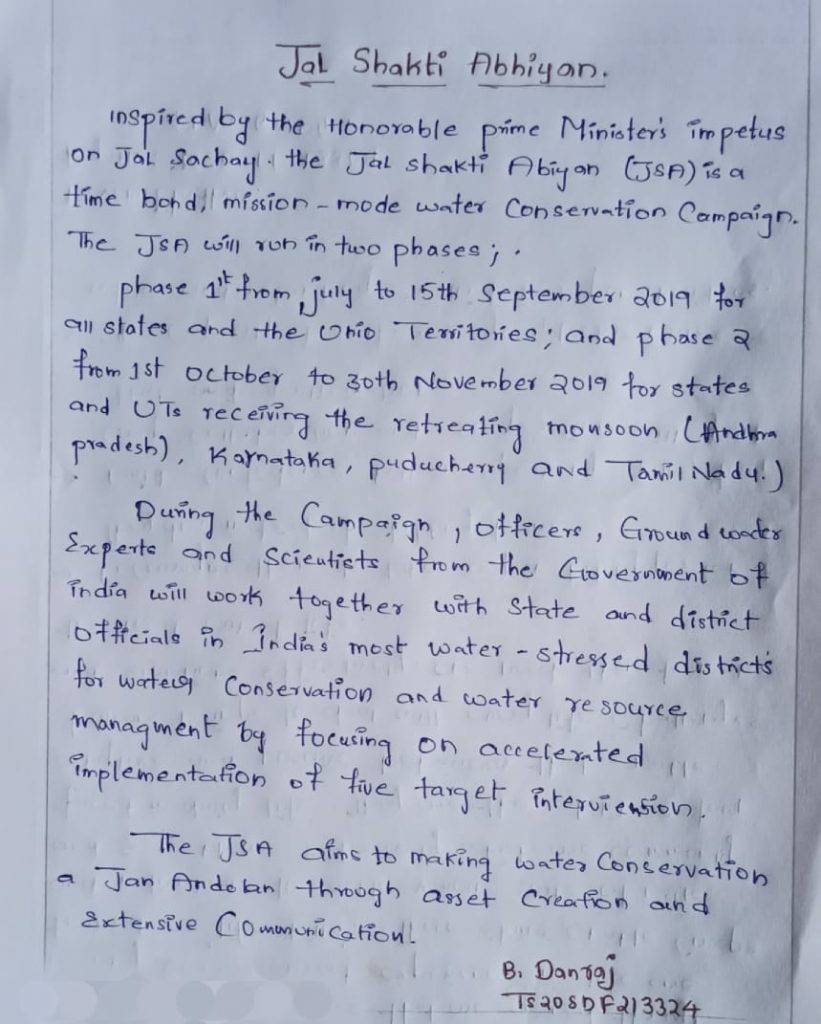 Jal Shakti Abhiyan.
inspired by the Honorable prime Minister's impetus
on Jal Sachay. the Jal shakti Abiyan (JSA) is a
time bond, mission - mode water Conservation Campaign.
The JSA will run in two phases;
phase 1st from july to 15th September 2019 for
all states and the Unio Territories; and phase 2
from 1st October to 30th November 2019 for states
and UTs receiving the retreating monsoon (Andhra
pradesh), Karnataka, puducherry and Tamil Nadu.)
During the Campaign, officers, Ground water
Experts and Scientists from the Government of
india will work together with State and district
officials in India's most water - stressed districts
for water Conservation and water resource
managment by focusing on accelerated
implementation of five target interviension.
The JSA aims to making water Conservation
a Jan Andolan through asset Creation and
Extensive Communication.
B. Danraj
TS20SDF213324